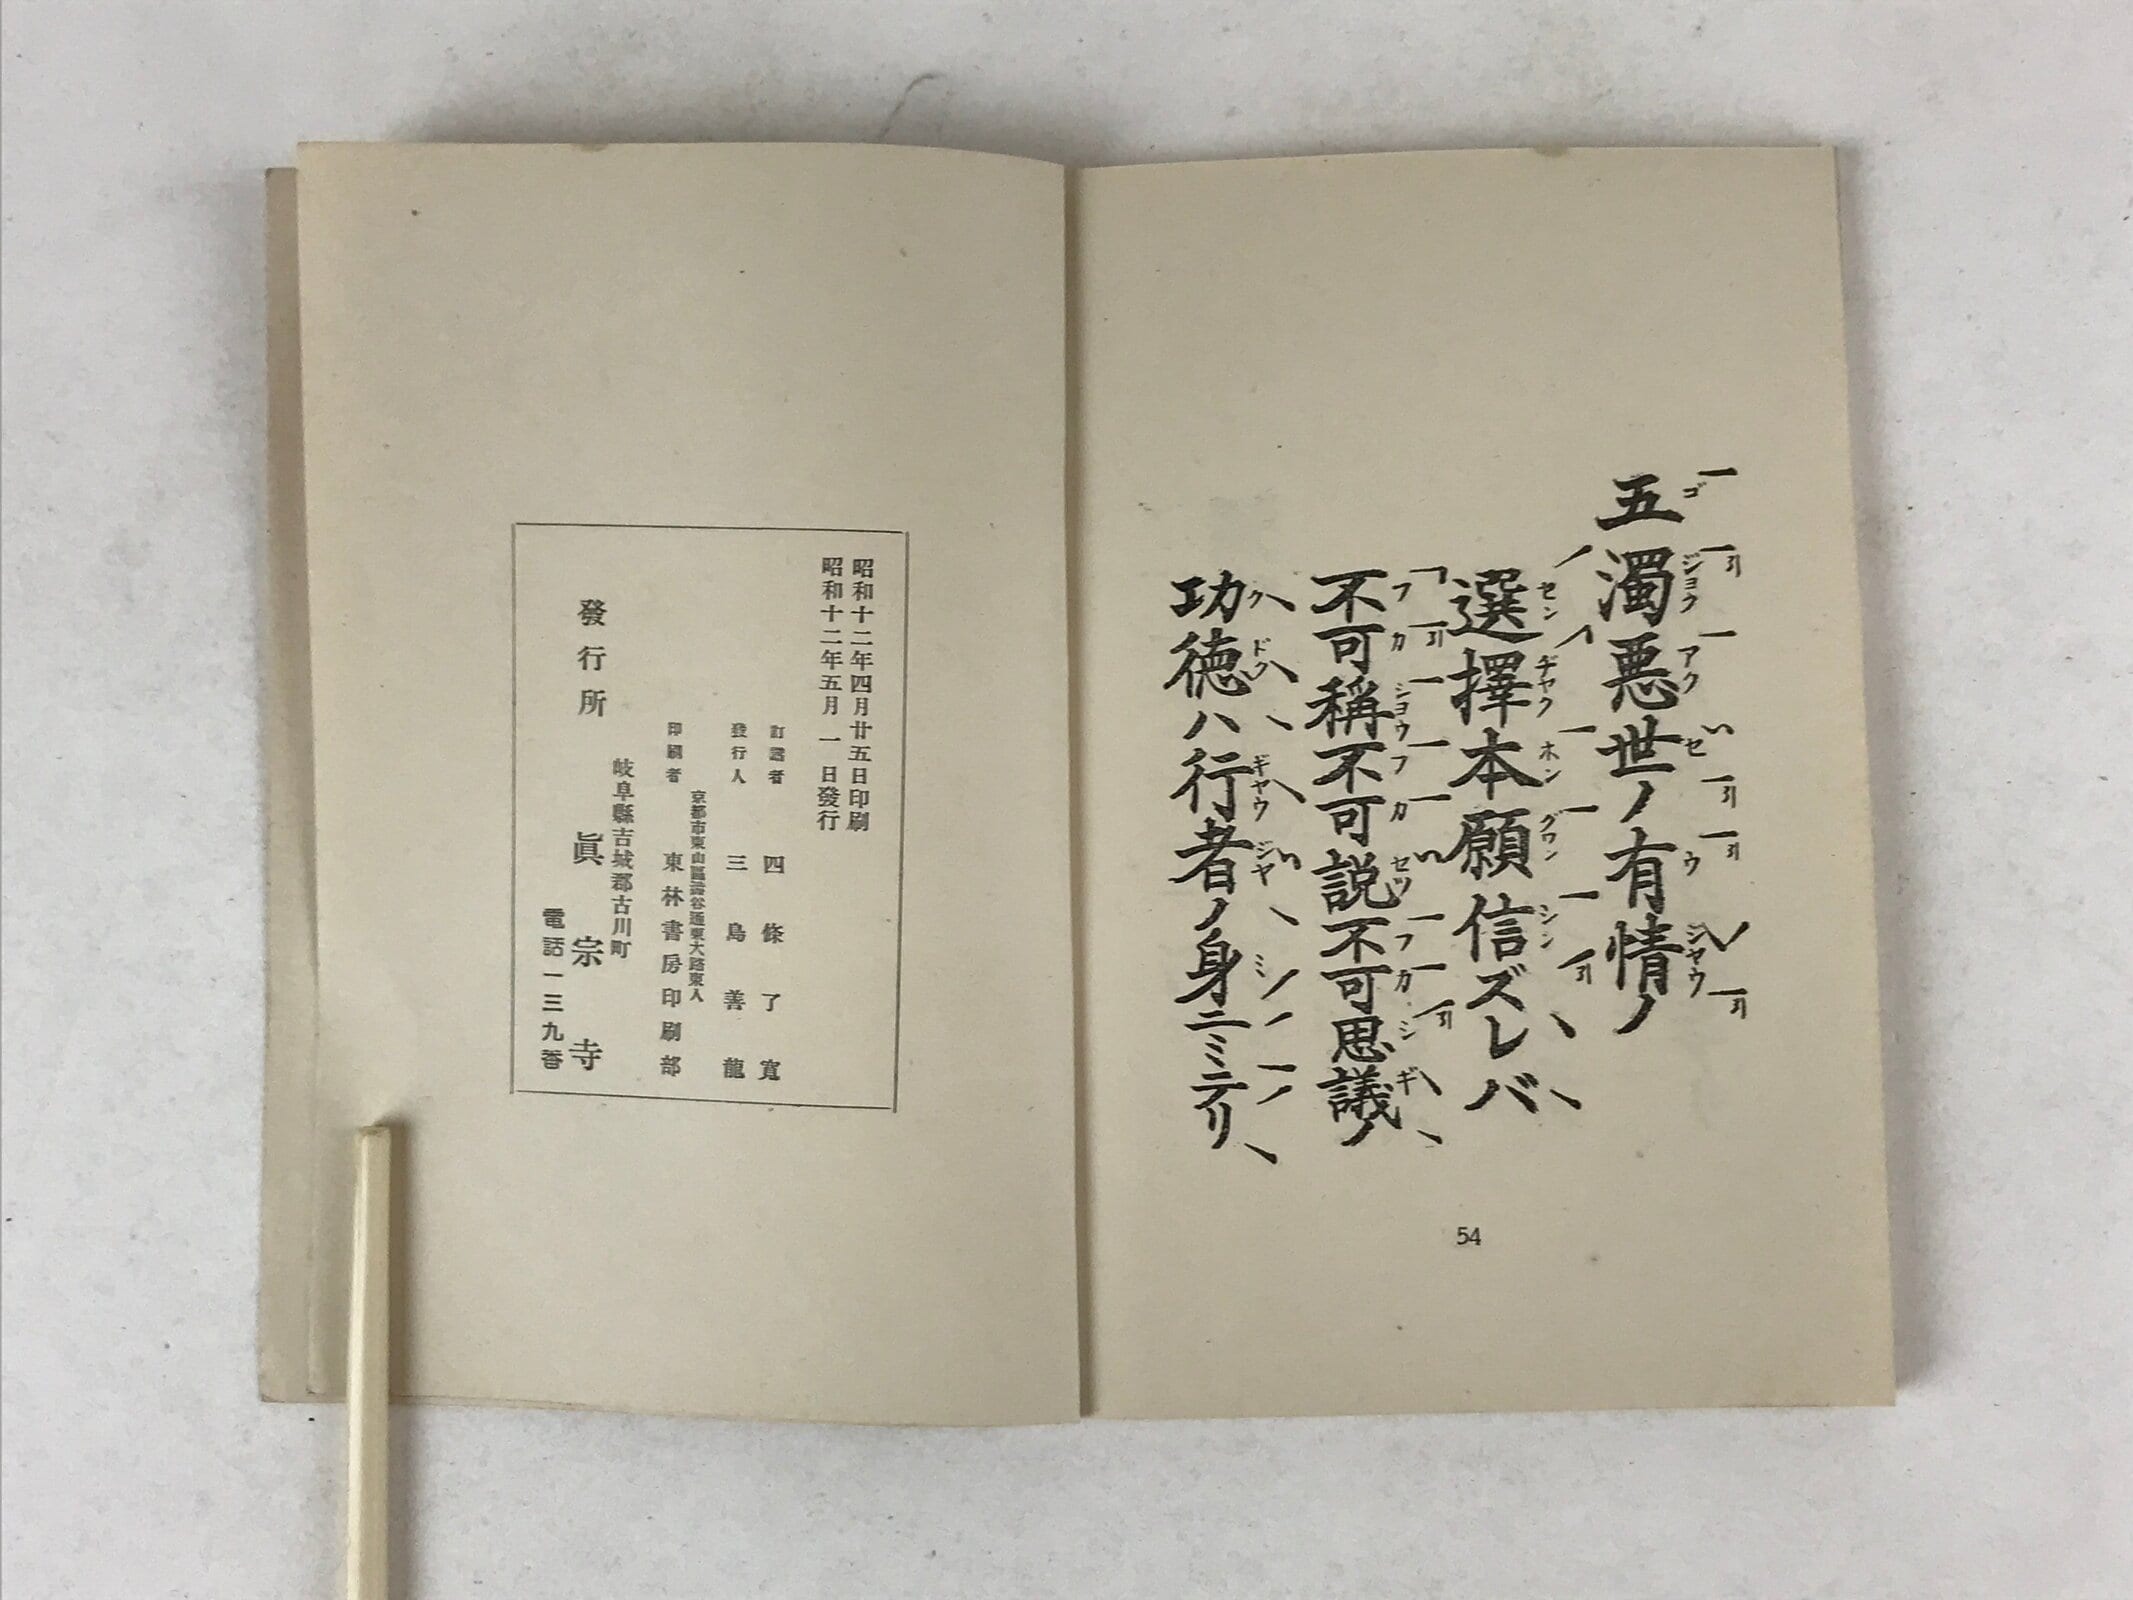 五濁悪世ノ有情ノ
選擇本願信ズレバ
不可稱不可説不可思議ノ
功徳ハ行者ノ身ニミテリ
54
昭和十二年四月廿五日印刷
昭和十二年五月一日發行
訂選者 四條了寛
發行人 三島善龍
京都市東山區澁谷通東大路東入
印刷者 東林書房印刷部
岐阜縣吉城郡古川町
發行所 眞宗寺
電話一三九番